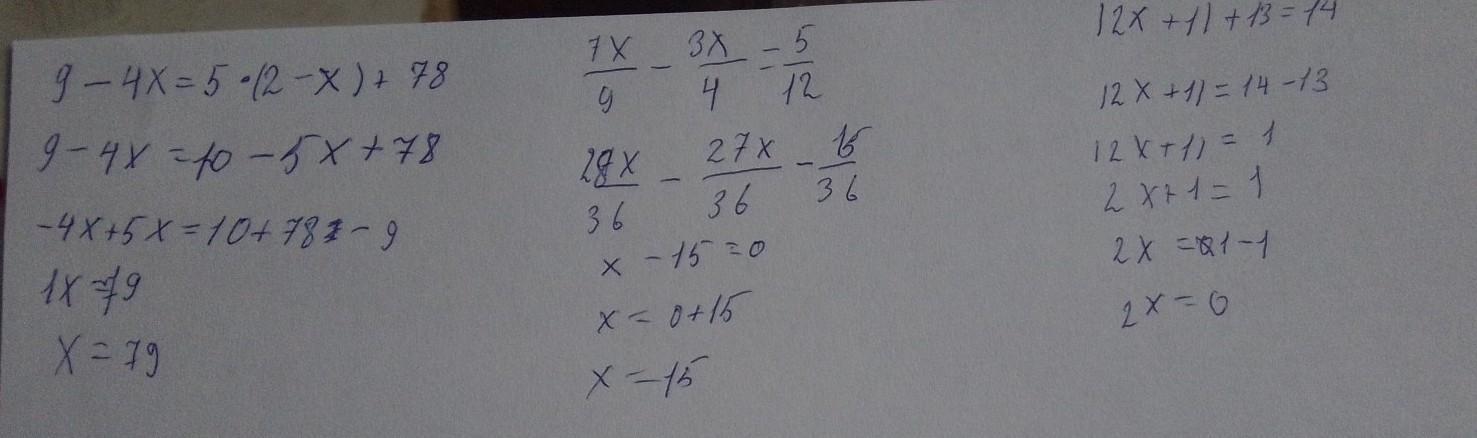 9 - 4x = 5 · (2 - x) + 78
9 - 4x = 10 - 5x + 78
-4x + 5x = 10 + 78 - 9
1x = 79
x = 79
7x/9 - 3x/4 = 5/12
28x/36 - 27x/36 - 15/36
x - 15 = 0
x = 0 + 15
x = 15
|2x + 1| + 13 = 14
|2x + 1| = 14 - 13
|2x + 1| = 1
2x + 1 = 1
2x = 1 - 1
2x = 0